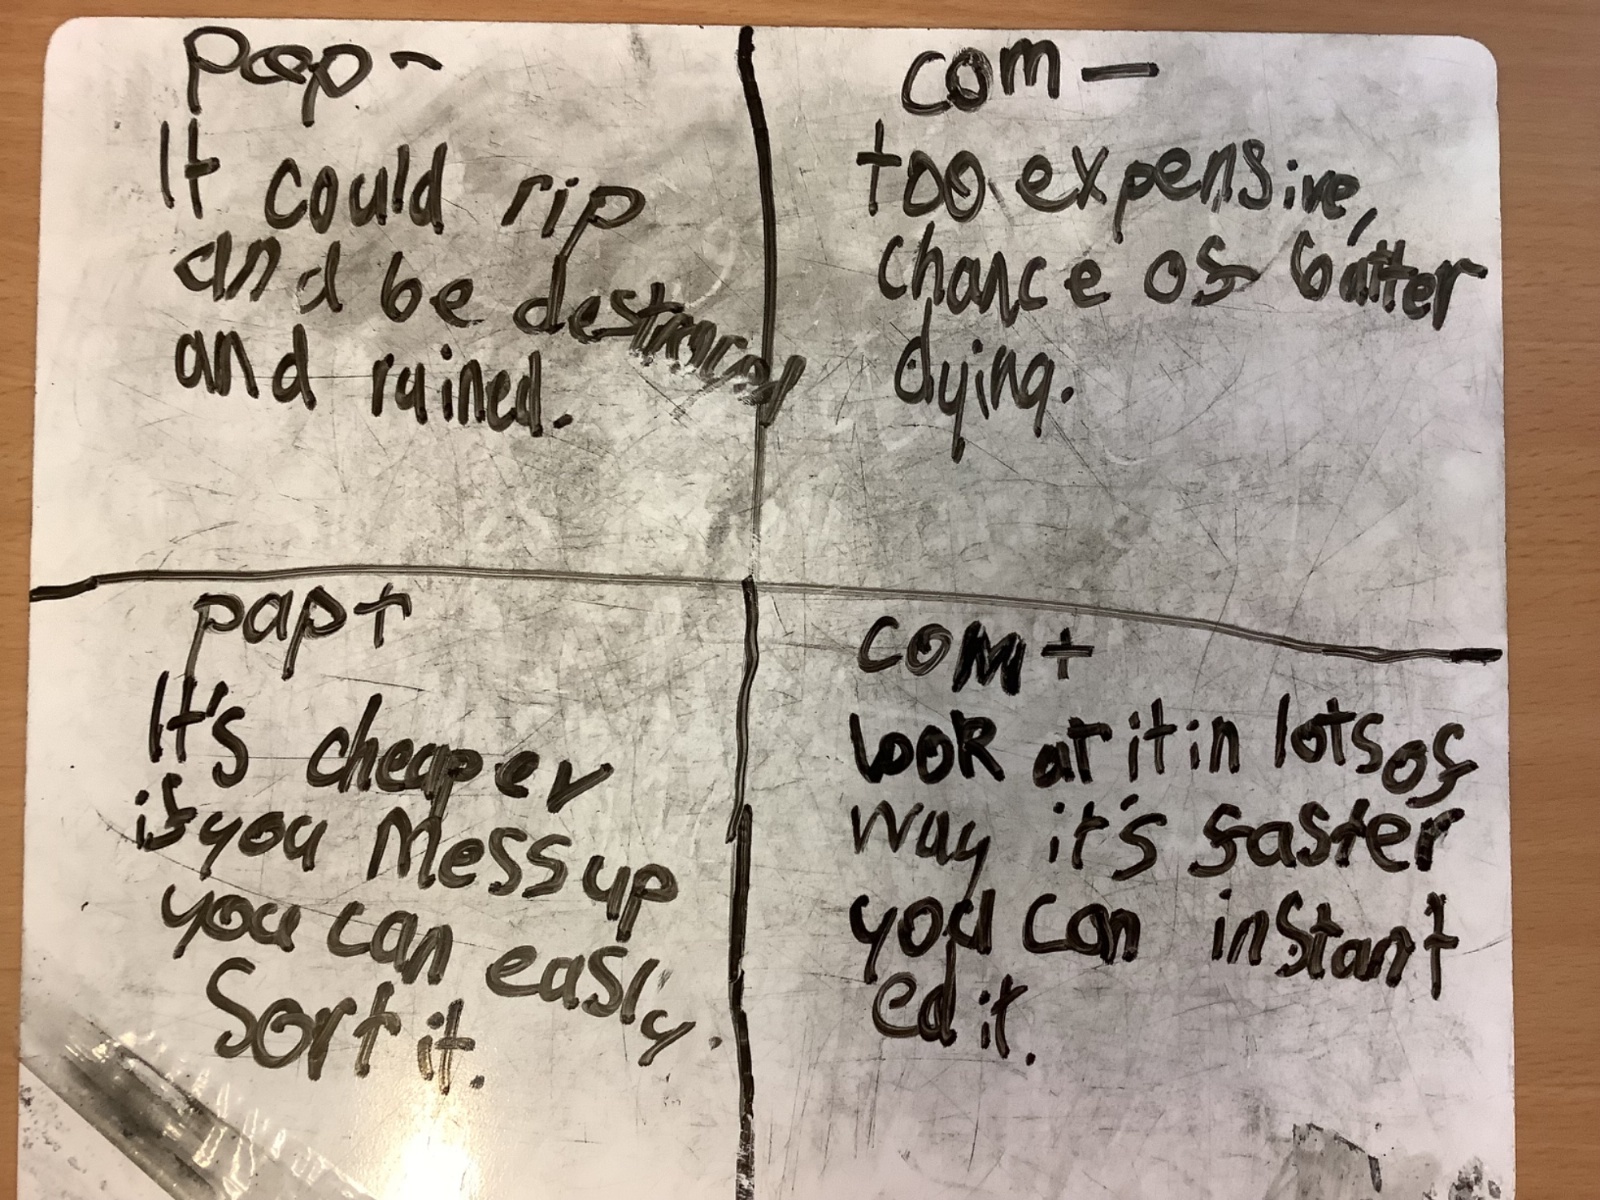 pap -
It could rip
and be destroyed
and ruined.
com -
too expensive,
chance of batter
dying.
pap +
It's cheaper
if you Mess up
you can easily.
Sort it.
com +
look at it in lots of
way it's faster
you can instant
edit.